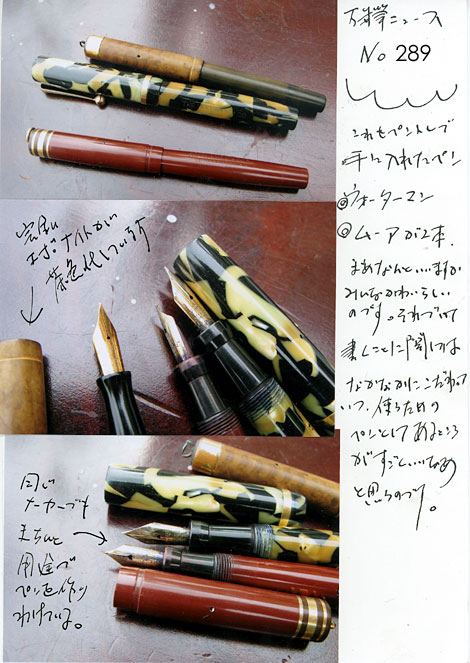 万年筆ニュース
No 289
これもペントレで
手に入れたペン
◎ウォーターマン
◎ムーアが2本.
まあなんと…ますか
みんなかわいらしい
のです。それでいて
書くことに関しては
なかなかにこだわって
いて、使うための
ペンとしてあるところ
がすごい…なあ
と思うのです。
完全に
エボナイトが
茶色化しています
同じ
メーカーでも
きちんと
用途で
ペンを作り
わけている。